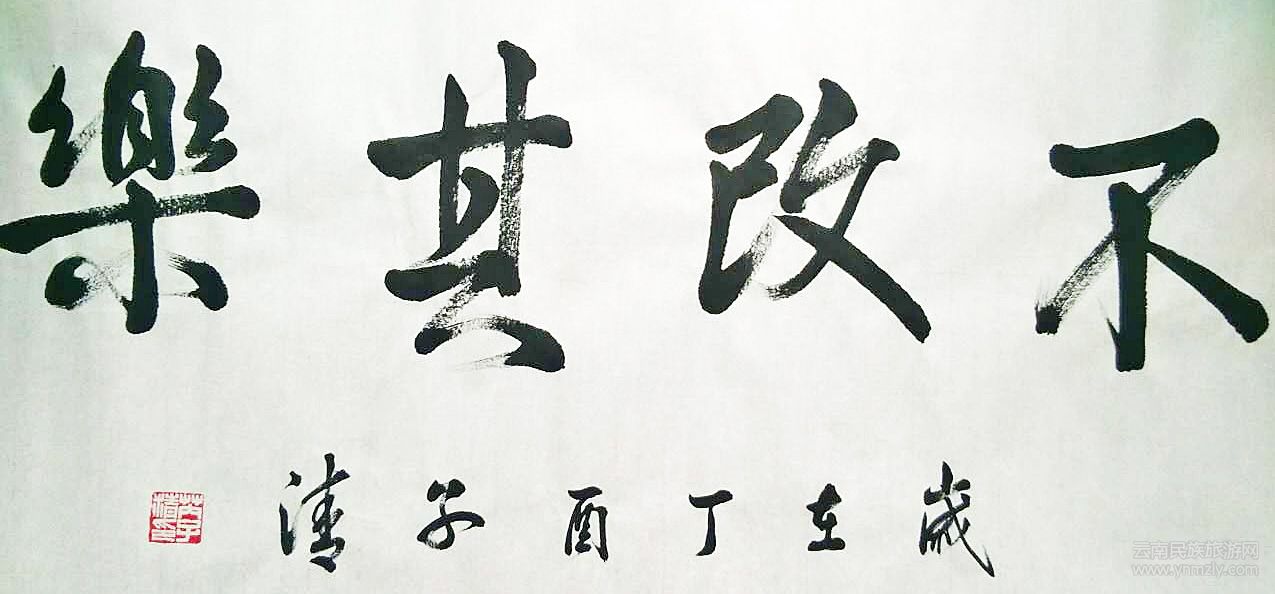 不改其樂
歲在丁酉子清
云南民族旅游网
www.ynmzly.com